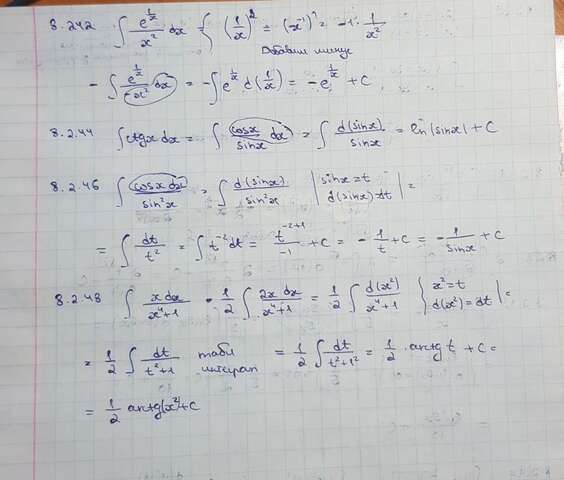 8.242 ∫ e^(1/x)/x² dx = { (1/x)' = (x⁻¹)' = -1 · 1/x²
Добавим минус
- ∫ e^(1/x)/(-x²) dx = -∫ e^(1/x) d(1/x) = -e^(1/x) + C
8.244 ∫ ctgx dx = ∫ cosx/sinx dx = ∫ d(sinx)/sinx = ln|sinx| + C
8.246 ∫ cosx dx/sin²x = ∫ d(sinx)/sin²x | sinx = t d(sinx) = dt | =
= ∫ dt/t² = ∫ t⁻² dt = t^(-2+1)/-1 + C = - 1/t + C = - 1/sinx + C
8.248 ∫ x dx/(x⁴+1) = 1/2 ∫ 2x dx/(x⁴+1) = 1/2 ∫ d(x²)/(x⁴+1) { x² = t d(x²) = dt | =
= 1/2 ∫ dt/(t²+1) табл интеграл = 1/2 ∫ dt/(t²+1²) = 1/2 · arctg t + C =
= 1/2 arctg(x²) + C